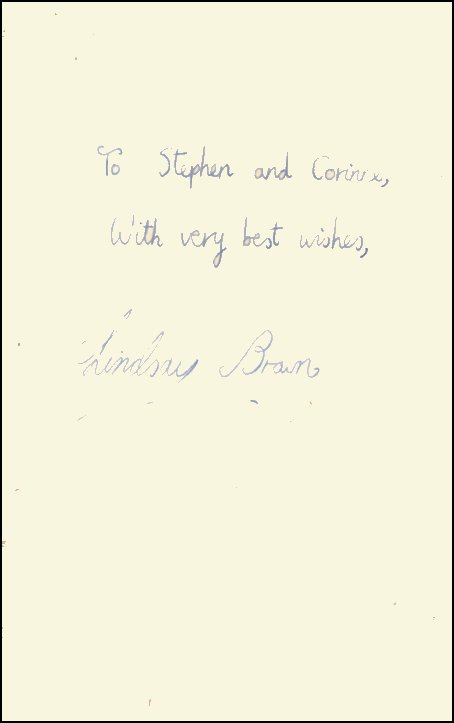 To Stephen and Corinne,
With very best wishes,
Lindsay Brown